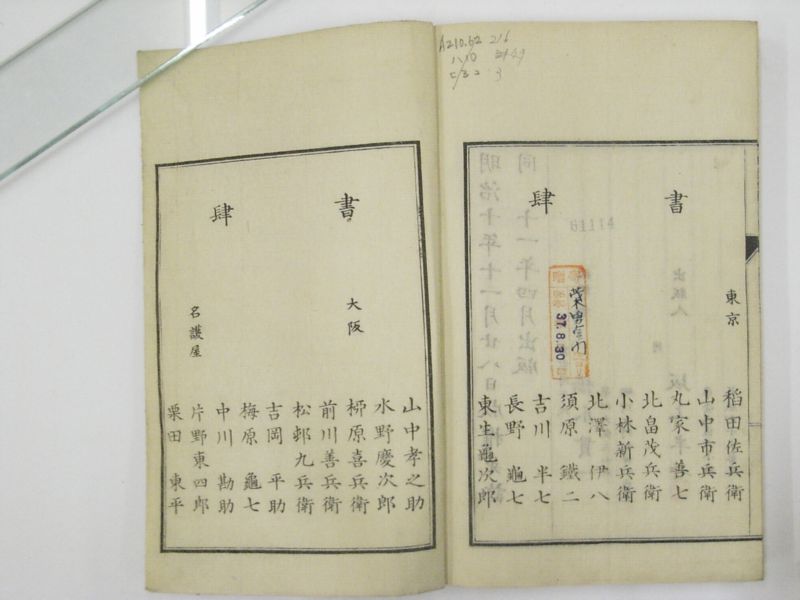 A210.62 216
書肆
東京
稲田佐兵衛
山中市兵衛
丸家善七
北畠茂兵衛
小林新兵衛
北澤伊八
須原鐵二
吉川半七
長野龜七
東生龜次郎
37.8.30
61114
明治十年十一月廿八日
同十一年四月出版
出版人
書肆
大阪
山中孝之助
水野慶次郎
栁原喜兵衛
前川善兵衛
松邨九兵衛
吉岡平助
梅原龜七
中川勘助
名護屋
片野東四郎
栗田東平